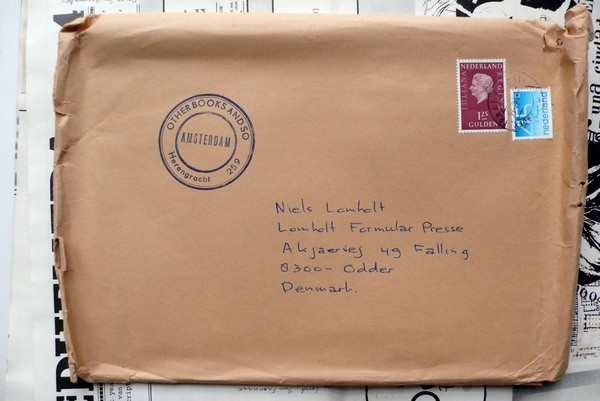 OTHERBOOKSANDSO
AMSTERDAM
Herengracht 259
JULIANA NEDERLAND REGINA
1.25
GULDEN
45
nederland
Niels Lomholt
Lomholt Formular Presse
Akjaervej 49 Falling
8300- Odder
Denmark.